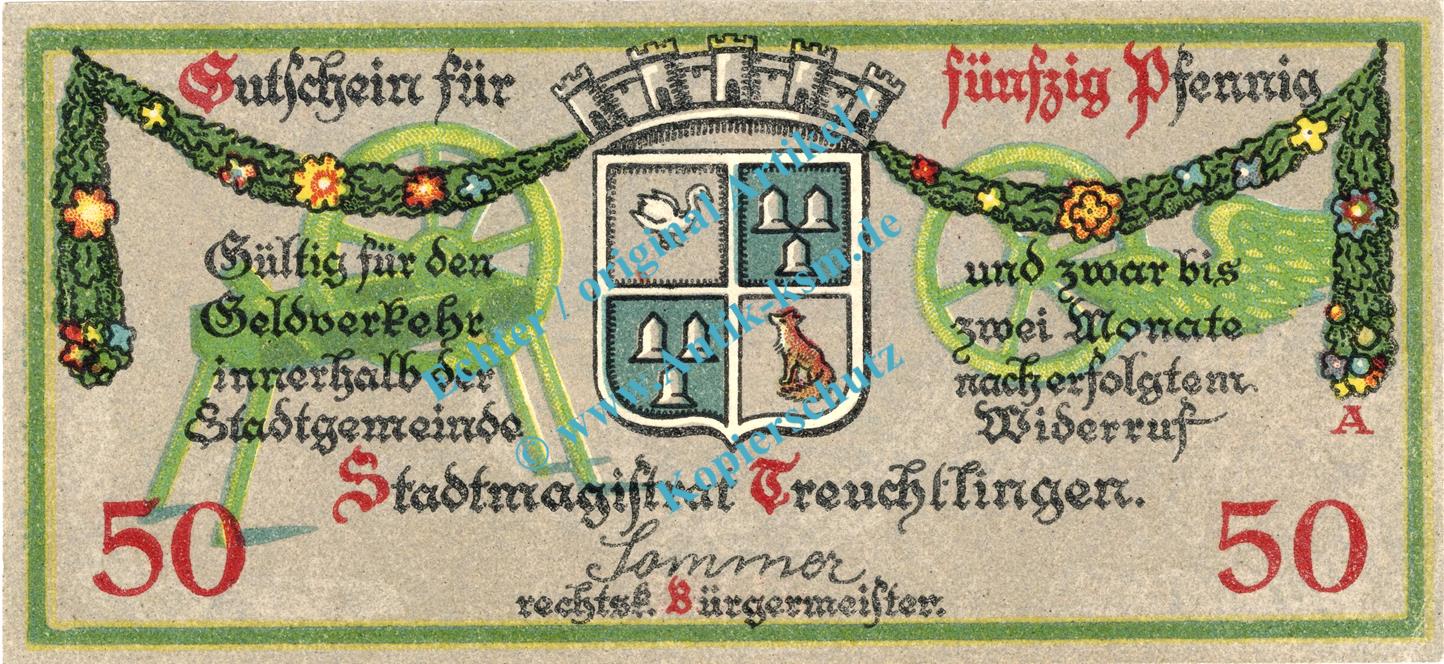 Gutschein für fünfzig Pfennig
Gültig für den
Geldverkehr
innerhalb der
Stadtgemeinde
und zwar bis
zwei Monate
nach erfolgtem
Widerruf
A
Stadtmagistrat Treuchtlingen.
50
50
Sommer
rechtsk. Bürgermeister.
Echter / original Artikel /
© www.Antik-ksm.de
Kopierschutz